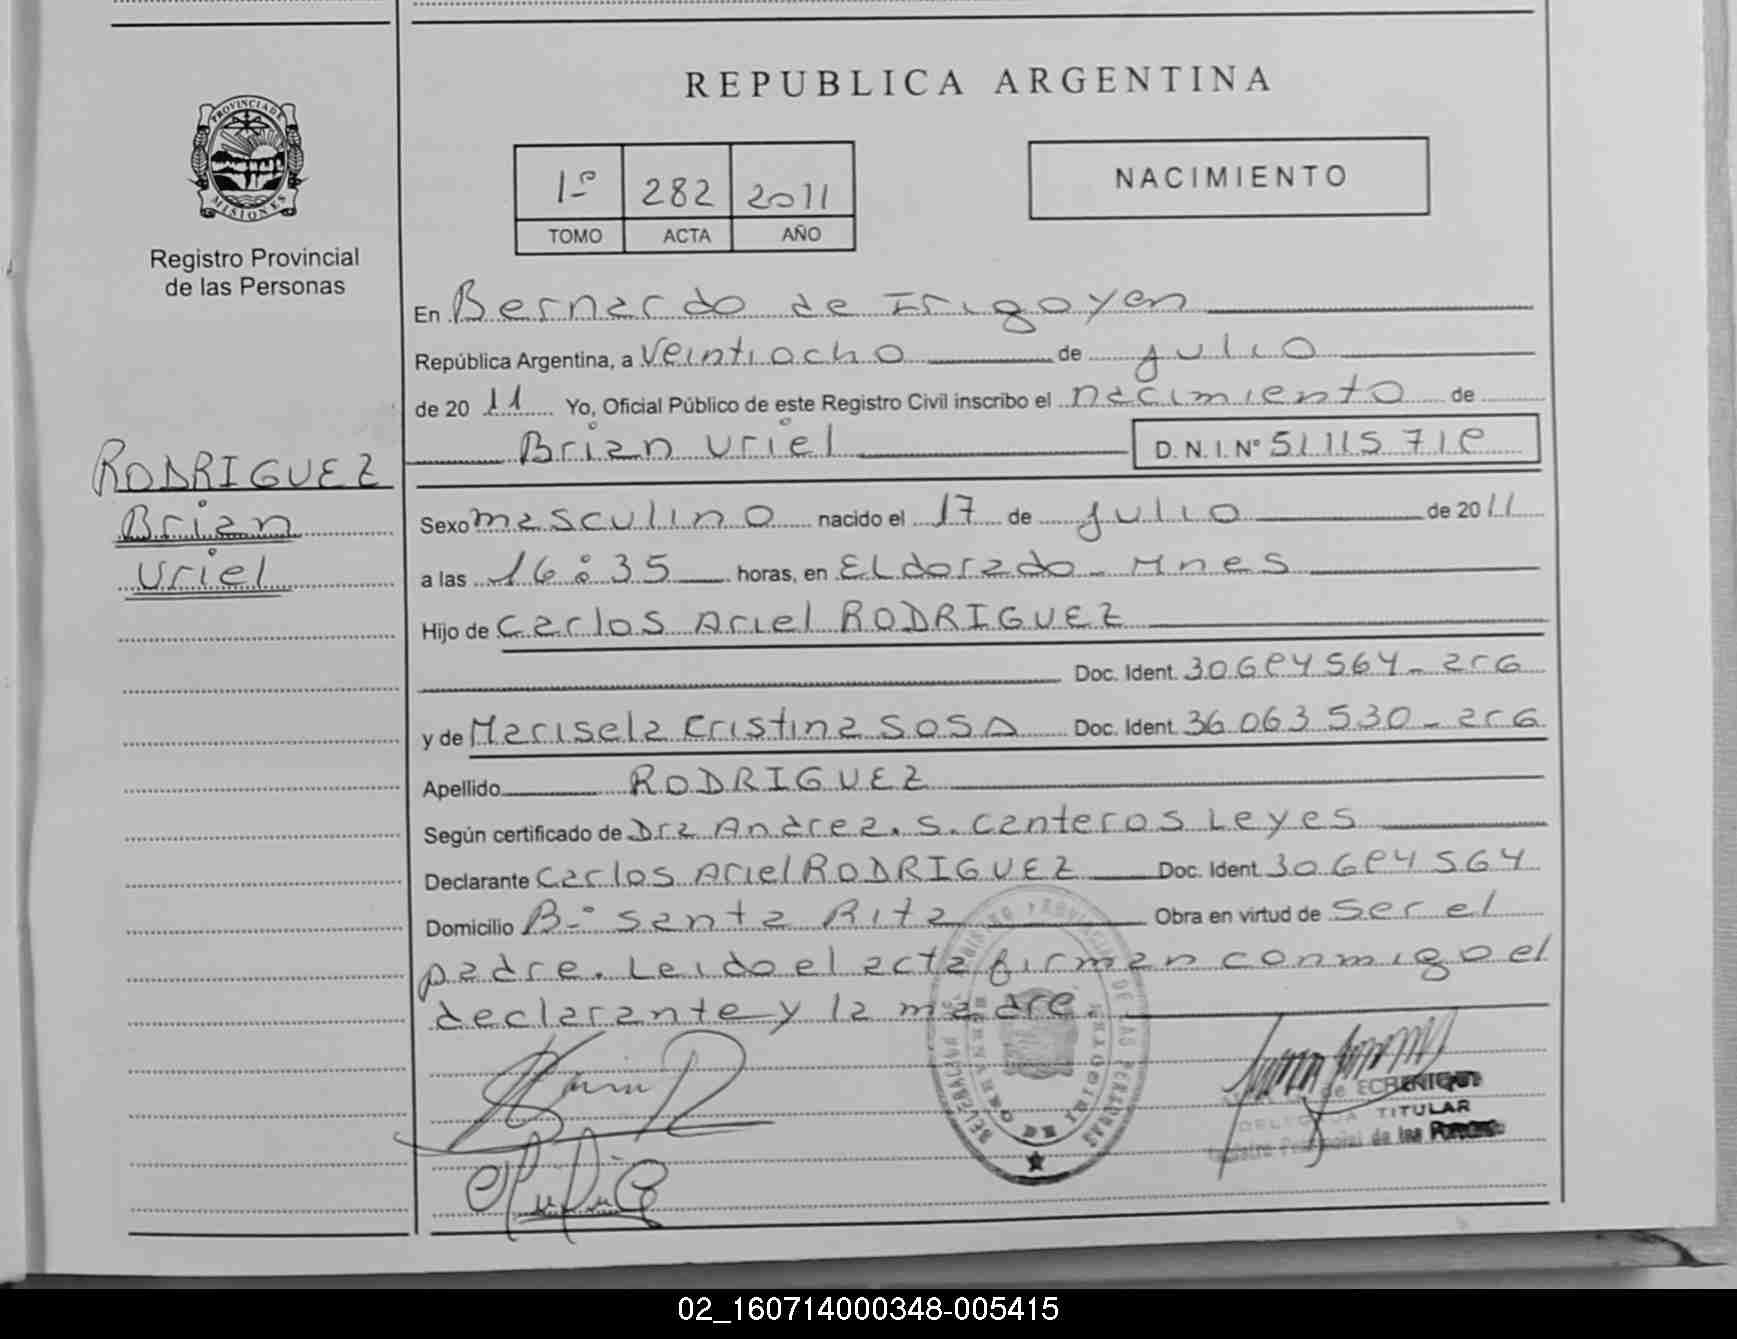 REPUBLICA ARGENTINA
PROVINCIA DE
MISIONES
Registro Provincial
de las Personas
1º 282 2011
TOMO ACTA AÑO
NACIMIENTO
En Bernardo de Irigoyen
República Argentina, a Veintiocho de julio
de 20 11 Yo, Oficial Público de este Registro Civil inscribo el nacimiento de
Brian Uriel D. N. I. Nº
RODRIGUEZ
Brian
Uriel
Sexo masculino nacido el 17 de julio de 2011
a las 16:35 horas, en Eldorado - Mnes
Hijo de Carlos Ariel RODRIGUEZ
Doc. Ident.
y de Marisela Cristina SOSA Doc. Ident. 36 063 530 - arg
Apellido RODRIGUEZ
Según certificado de Dra Andrea. S. Canteros Leyes
Declarante Carlos Ariel RODRIGUEZ Doc. Ident.
Domicilio Bº Santa Rita Obra en virtud de ser el
padre. Leido el acta firman conmigo el
declarante y la madre.
de ECHENIQUE
TITULAR
de las
02_160714000348-005415